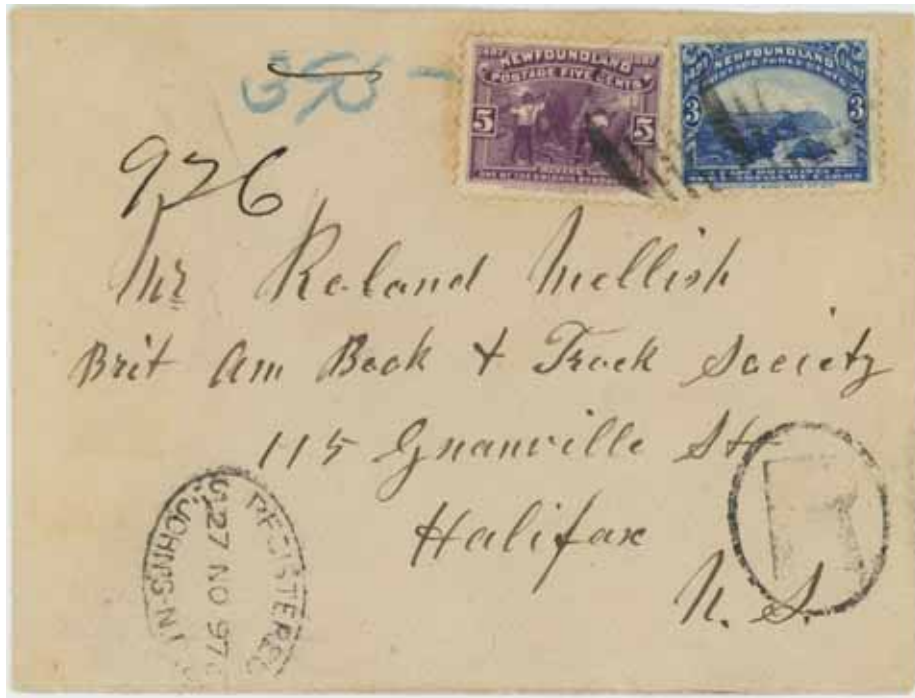 1497 1897
NEWFOUNDLAND
POSTAGE FIVE CENTS
5 5
1497 1897
NEWFOUNDLAND
POSTAGE THREE CENTS
3 3
926
Mr Roland Mellish
Brit Am Book & Track Society
115 Granville St
Halifax
N. S.
REGISTERED
27 NO 97
ST. JOHN'S. N.F.
R